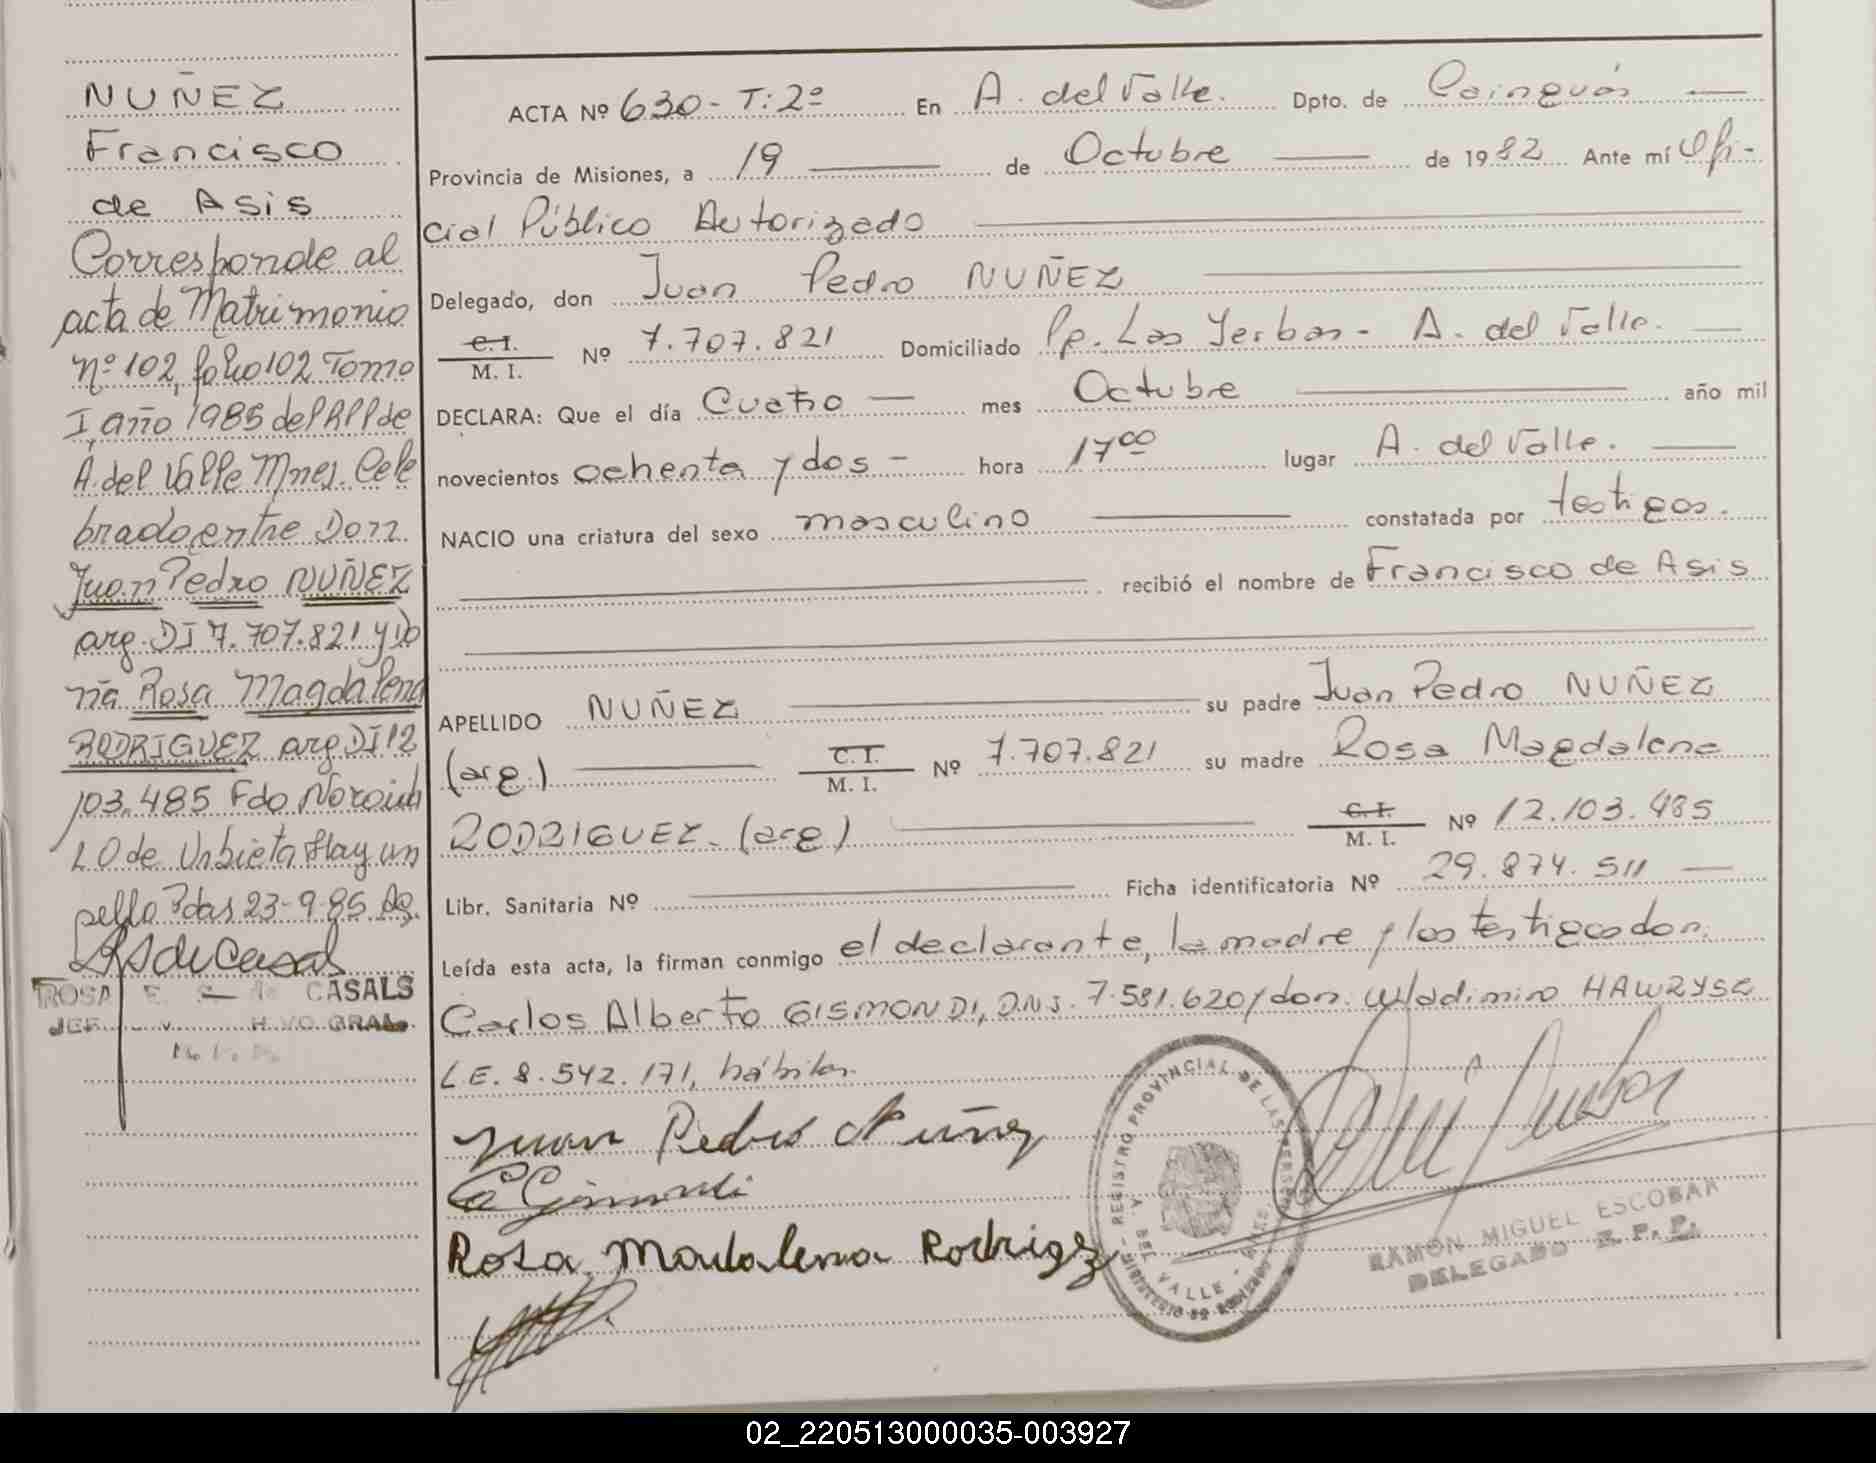 NUÑEZ
Francisco
de Asis
Corresponde al
acta de Matrimonio
nº 102, folio 102 Tomo
I, año 1985 del RPP de
A. del Valle Mnes. Cele
brado entre Don
Juan Pedro NUÑEZ
arg. DI 7.707.821 y Do
ña Rosa Magdalena
RODRIGUEZ arg DI 12
103.485 Fdo
L O de Urbieta Hay un
sello Pdas 23-9-85
ROSA E. CASALS
ACTA Nº 630- T: 2º En A. del Valle. Dpto. de Cainguás
Provincia de Misiones, a 19 de Octubre de 1982 Ante mí Ofi-
cial Público Autorizado
Delegado, don Juan Pedro NUÑEZ
C. I.
M. I. Nº 7.707.821 Domiciliado Pp. Las Yerbas - A. del Valle.
DECLARA: Que el día Cuatro mes Octubre año mil
novecientos ochenta y dos - hora 17⁰⁰ lugar A. del Valle.
NACIO una criatura del sexo masculino constatada por testigos.
recibió el nombre de Francisco de Asis
APELLIDO NUÑEZ su padre Juan Pedro NUÑEZ
(arg.) C. I.
M. I. Nº 7.707.821 su madre Rosa Magdalena
RODRIGUEZ. (arg) C. I.
M. I. Nº 12.103.485
Libr. Sanitaria Nº Ficha identificatoria Nº 29.874.511
Leída esta acta, la firman conmigo el declarante, la madre y los testigos don.
Carlos Alberto GISMONDI, D.N.I. 7.581.620 y don. Wladimiro HAWRYSZ
L E. 8.542.171, hábiles.
Juan Pedro Nuñez
Rosa Madalena Rodrigez
REGISTRO PROVINCIAL DE LAS PERSONAS
DEL VALLE
RAMON MIGUEL ESCOBAR
DELEGADO R. P. P.
02_220513000035-003927